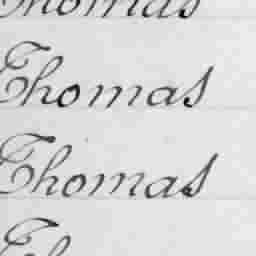 Thomas
Thomas
Thomas
Th